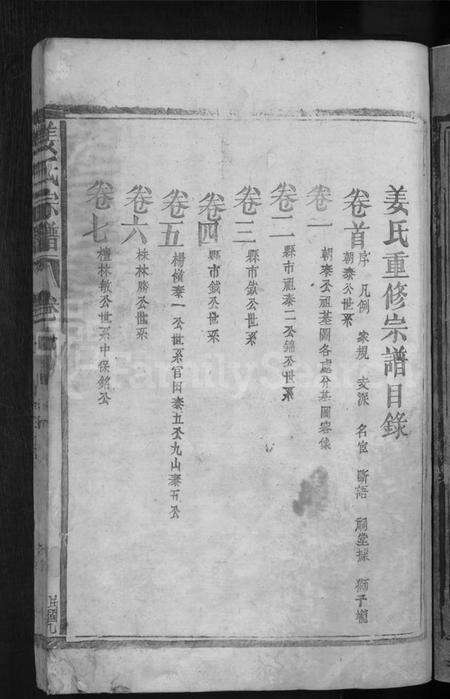 姜氏重修宗譜目錄
卷首 序 凡例 家規 文派 名宦 斷語 祠堂 獅子
朝泰公世系
卷一 朝泰公祖墓圖各處分墓圖
卷二 縣市祖泰二公錦公世系
卷三 縣市鉞公世系
卷四 縣市鉞公世系
卷五 楊橫泰一公世系官田泰五公九山泰五公
卷六 株林勝公世系
卷七 檀林敏公世系中保銘公
姜氏宗譜 卷
FamilySearch